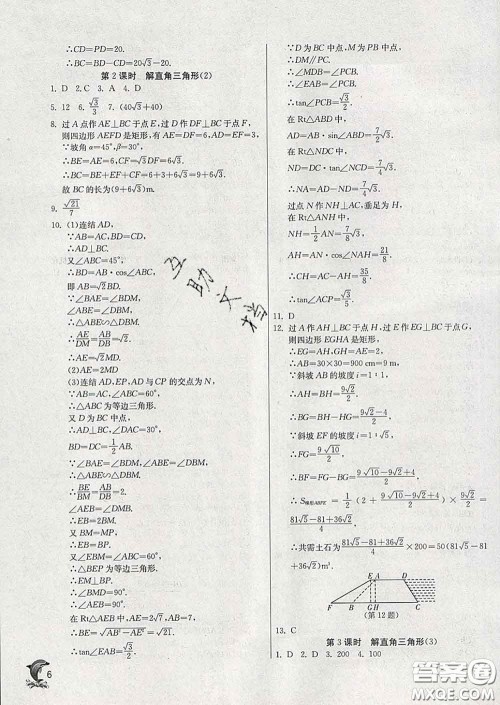 ∴CD=PD=20.
∴BC=BD-CD=20√3-20.
第 2 课时 解直角三角形(2)
1. D 2. C 3. A 4. D
5. 12 6. √3/3 7. (40√3+40)
8. 过 A 点作 AE⊥BC 于点 E,过 D 作 DF⊥BC 于点 F,
则四边形 AEFD 是矩形,有 AE=DF=6,AD=EF=3,
∵坡角 α=45°,β=30°,
∴BE=AE=6,CF=√3DF=6√3.
∴BC=BE+EF+CF=6+3+6√3=9+6√3.
故 BC 的长为(9+6√3)m.
9. √21/7
10. (1)连结 AD.
∵AB=AC,BD=CD,
∴AD⊥BC.
又∠ABC=45°,
∴BD=AB·cos∠ABC,
即 AB=√2BD.
∵∠BAE=∠BDM,
∠ABE=∠DBM,
∴△ABE∽△DBM.
∴AE/DM=AB/DB=√2.
∴AE=√2MD.
(2)AE=2MD
(3)连结 AD,EP,AD 与 CP 的交点为 N,
∵AB=AC,∠ABC=60°,
∴△ABC 为等边三角形.
又 D 为 BC 中点,
∴AD⊥BC,∠DAC=30°,
BD=DC=1/2AB.
∵∠BAE=∠BDM,∠ABE=∠DBM,
∴△ABE∽△DBM.
∴BE/BM=AB/DB=2.
∠AEB=∠DMB.
∴EB=2BM.
又 BM=MP,
∴EB=BP.
又∠EBM=∠ABC=60°,
∴△BEP 为等边三角形.
∴EM⊥BP.
∴∠BMD=90°.
∴∠AEB=90°.
在 Rt△AEB 中,AE=2√7,AB=7,
∴BE=√(AB²-AE²)=√21.
∴tan∠EAB=√3/2.
∵D 为 BC 中点,M 为 BP 中点,
∴DM∥PC.
∴∠MDB=∠PCB.
∴∠EAB=∠PCB.
∴tan∠PCB=√3/2.
在 Rt△ABD 中,
AD=AB·sin∠ABD=7/2√3.
在 Rt△NDC 中,
ND=DC·tan∠NCD=7/4√3.
∴NA=AD-ND=7/4√3.
过点 N 作 NH⊥AC,垂足为 H,
在 Rt△ANH 中,
NH=1/2AN=7/8√3,
AH=AN·cos∠NAH=21/8.
∴CH=AC-AH=35/8.
∴tan∠ACP=√3/5.
11. D
12. 过点 A 作 AH⊥BC 于点 H,过 E 作 EG⊥BC 于点 G,
则四边形 EGHA 是矩形,
∵AB=30×30=900 cm=9 m,
∵斜坡 AB 的坡度 i=1∶1,
∴AH=BH=9√2/2.
∴BG=BH-HG=(9√2-4)/2.
∵斜坡 EF 的坡度 i=1∶√5,
∴FG=9√10/2.
∴BF=FG-BG=(9√10-9√2+4)/2.
∴S梯形ABFE=1/2(2+(9√10-9√2+4)/2)×9√2/2=
(81√5-81+36√2)/4.
∴共需土石为(81√5-81+36√2)/4×200=50(81√5-
81+36√2)m³.
E A D
F B G H C
(第 12 题)
13. C
第 3 课时 解直角三角形(3)
1. D 2. D 3. 200 4. 100
6
互助文档
答案圈
MXQE.COM